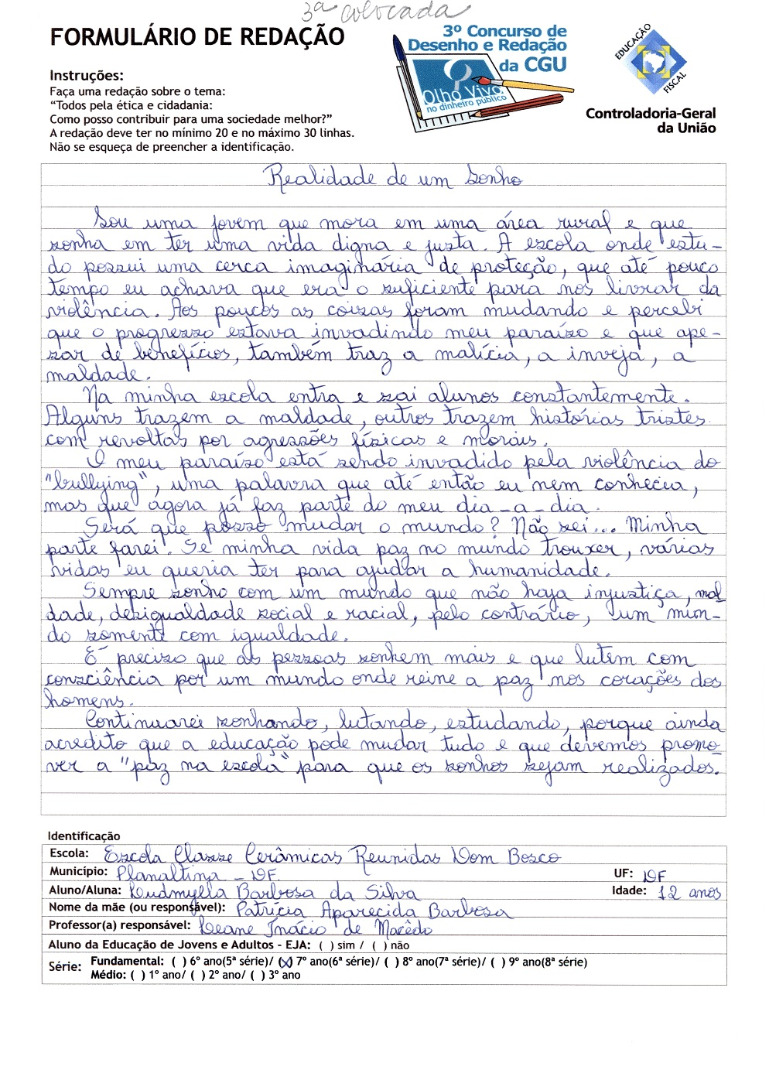 3ª colocada
FORMULÁRIO DE REDAÇÃO
Instruções:
Faça uma redação sobre o tema:
"Todos pela ética e cidadania:
Como posso contribuir para uma sociedade melhor?"
A redação deve ter no mínimo 20 e no máximo 30 linhas.
Não se esqueça de preencher a identificação.
3º Concurso de
Desenho e Redação
da CGU
Olho Vivo
no dinheiro público
EDUCAÇÃO
FISCAL
Controladoria-Geral
da União
Realidade de um Sonho
Sou uma jovem que mora em uma área rural e que
sonha em ter uma vida digna e justa. A escola onde estu-
do possui uma cerca imaginária de proteção, que até pouco
tempo eu achava que era o suficiente para nos livrar da
violência. Aos poucos as coisas foram mudando e percebi
que o progresso estava invadindo meu paraíso e que ape-
sar de benefícios, também traz a malícia, a inveja, a
maldade.
Na minha escola entra e sai alunos constantemente.
Alguns trazem a maldade, outros trazem histórias tristes
com revoltas por agressões físicas e morais.
O meu paraíso está sendo invadido pela violência do
"bullying", uma palavra que até então eu nem conhecia,
mas que agora já faz parte do meu dia-a-dia.
Será que posso mudar o mundo? Não sei... Minha
parte farei. Se minha vida paz no mundo trouxer, várias
vidas eu queria ter para ajudar a humanidade.
Sempre sonho com um mundo que não haja injustiça, mal
dade, desigualdade social e racial, pelo contrário, um mun-
do somente com igualdade.
É preciso que as pessoas sonhem mais e que lutem com
consciência por um mundo onde reine a paz nos corações dos
homens.
Continuarei sonhando, lutando, estudando, porque ainda
acredito que a educação pode mudar tudo e que devemos promo
ver a "paz na escola" para que os sonhos sejam realizados.
Identificação
Escola: Escola Classe Cerâmicas Reunidas Dom Bosco
Município: Planaltina - DF UF: DF
Aluno/Aluna: Ludmylla Barbosa da Silva Idade: 12 anos
Nome da mãe (ou responsável): Patrícia Aparecida Barbosa
Professor(a) responsável: Deane Inácio de Macêdo
Aluno da Educação de Jovens e Adultos - EJA: ( ) sim / ( ) não
Série: Fundamental: ( ) 6º ano(5ª série)/ (x) 7º ano(6ª série)/ ( ) 8º ano(7ª série)/ ( ) 9º ano(8ª série)
Médio: ( ) 1º ano/ ( ) 2º ano/ ( ) 3º ano